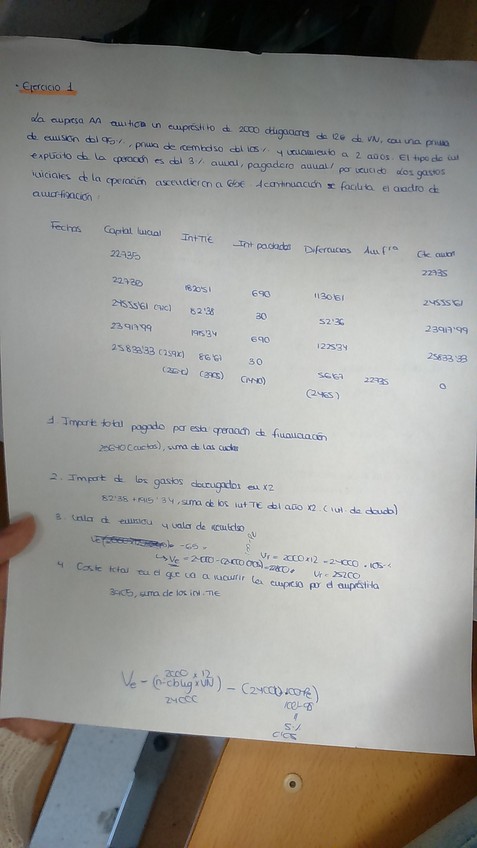 • Ejercicio 1
La empresa AA emitió un empréstito de 2000 obligaciones de 12€ de VN, con una prima
de emisión del 95%, prima de reembolso del 105% y vencimiento a 2 años. El tipo de int
explícito de la operación es del 3% anual, pagadero anual/ por vencido. Los gastos
iniciales de la operación ascendieron a 65€. A continuación se facilita el cuadro de
amortización:
Fechas Capital Inicial Int TIE Int pactados Diferencias Am fra Cte amor
22735 22735
22735 1820'51 690 1130'61 24535'61
24535'61 82'38 30 52'36 23917'99
23917'99 1915'34 690 1225'34 25833'33
25833'33 86'67 30 56'67 22735 0
(3905) (1440) (2465)
1. Importe total pagado por esta operación de financiación
(cuotas), suma de las cuotas
2. Importe de los gastos devengados en X2
82'38 + 1915'34, suma de los int TIE del año X2. (int. de deuda)
3. Valor de emisión y valor de reembolso
-65 =
Ve = 24000 - = 22800. Vr = 2000x12 = 24000 · 105%
Vr = 25200
4. Coste total en el que va a incurrir la empresa por el empréstito
3905, suma de los int. TIE
2000 x 12
Ve = (n·oblig x VN) -
24000
5%
0'05